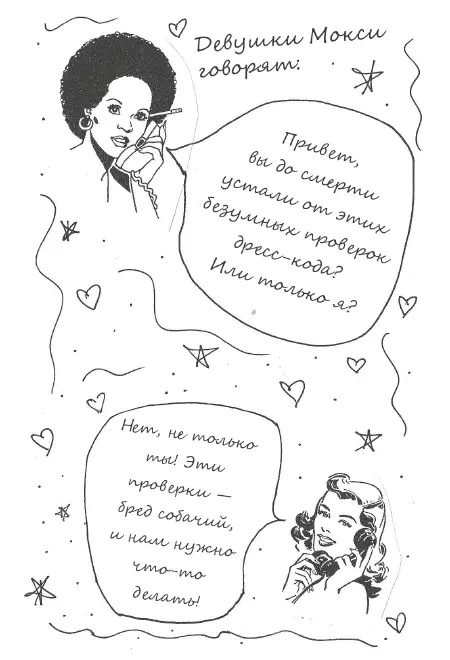 Девушки Мокси
говорят:
Привет,
вы до смерти
устали от этих
безумных проверок
дресс-кода?
Или только я?
Нет, не только
ты! Эти
проверки —
бред собачий,
и нам нужно
что-то
делать!